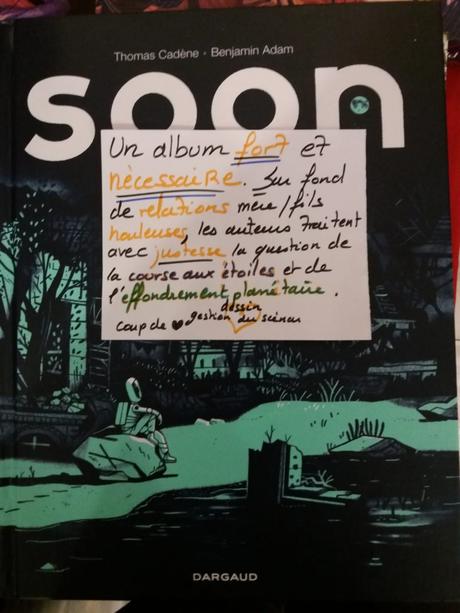 Thomas Cadène • Benjamin Adam
soon
Un album fort et
nécessaire. Sur fond
de relations mère/fils
houleuses, les auteurs traitent
avec justesse la question de
la course aux étoiles et de
l'effondrement planétaire.
dessin
Coup de ♥ gestion du
DARGAUD